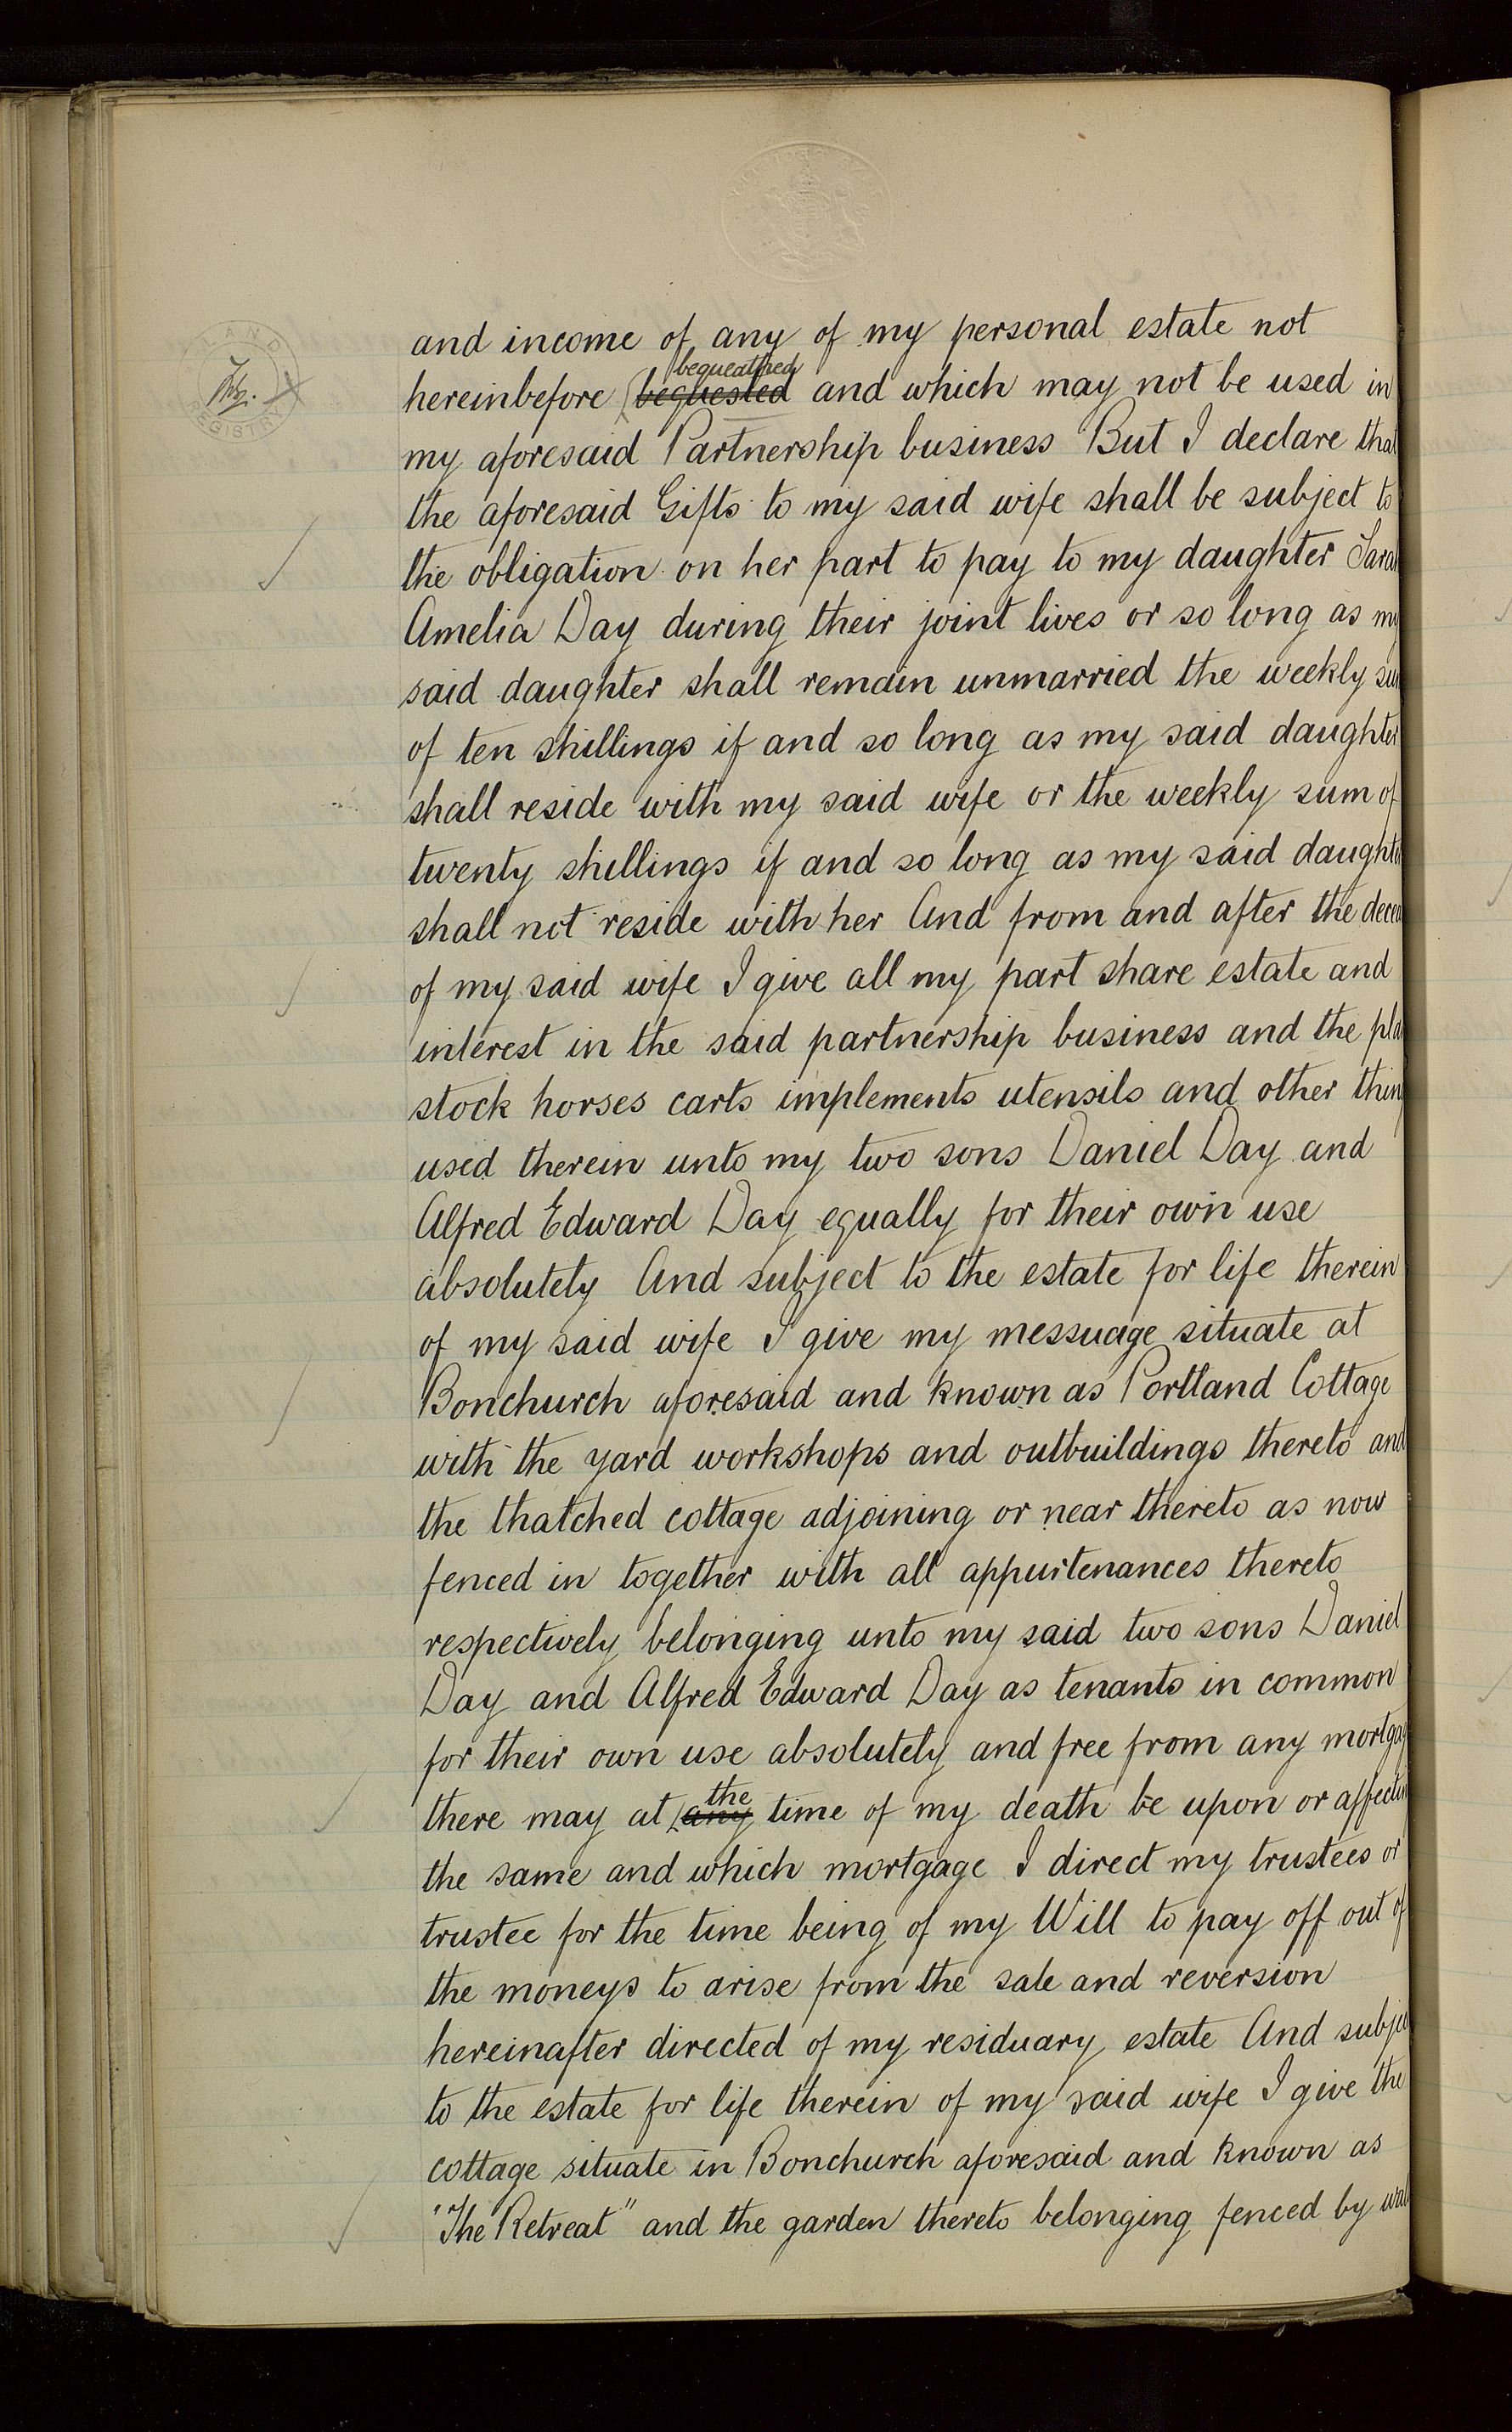 and income of any of my personal estate not
bequeathed
hereinbefore bequested and which may not be used in
my aforesaid Partnership business But I declare that
the aforesaid Gifts to my said wife shall be subject to
the obligation on her part to pay to my daughter Sarah
Amelia Day during their joint lives or so long as my
said daughter shall remain unmarried the weekly su
of ten shillings if and so long as my said daughter
shall reside with my said wife or the weekly sum of
twenty shillings if and so long as my said daughte
shall not reside with her And from and after the decea
of my said wife I give all my part share estate and
interest in the said partnership business and the pla
stock horses carts implements utensils and other thing
used therein unto my two sons Daniel Day and
Alfred Edward Day equally for their own use
absolutely And subject to the estate for life therein
of my said wife I give my messuage situate at
Bonchurch aforesaid and known as Portland Cottage
with the yard workshops and outbuildings thereto and
the thatched cottage adjoining or near thereto as now
fenced in together with all appurtenances thereto
respectively belonging unto my said two sons Daniel
Day and Alfred Edward Day as tenants in common
for their own use absolutely and free from any mortgag
the
there may at any time of my death be upon or affectin
the same and which mortgage I direct my trustees or
trustee for the time being of my Will to pay off out of
the moneys to arise from the sale and reversion
hereinafter directed of my residuary estate And subjec
to the estate for life therein of my said wife I give the
cottage situate in Bonchurch aforesaid and known as
"The Retreat" and the garden thereto belonging fenced by wal